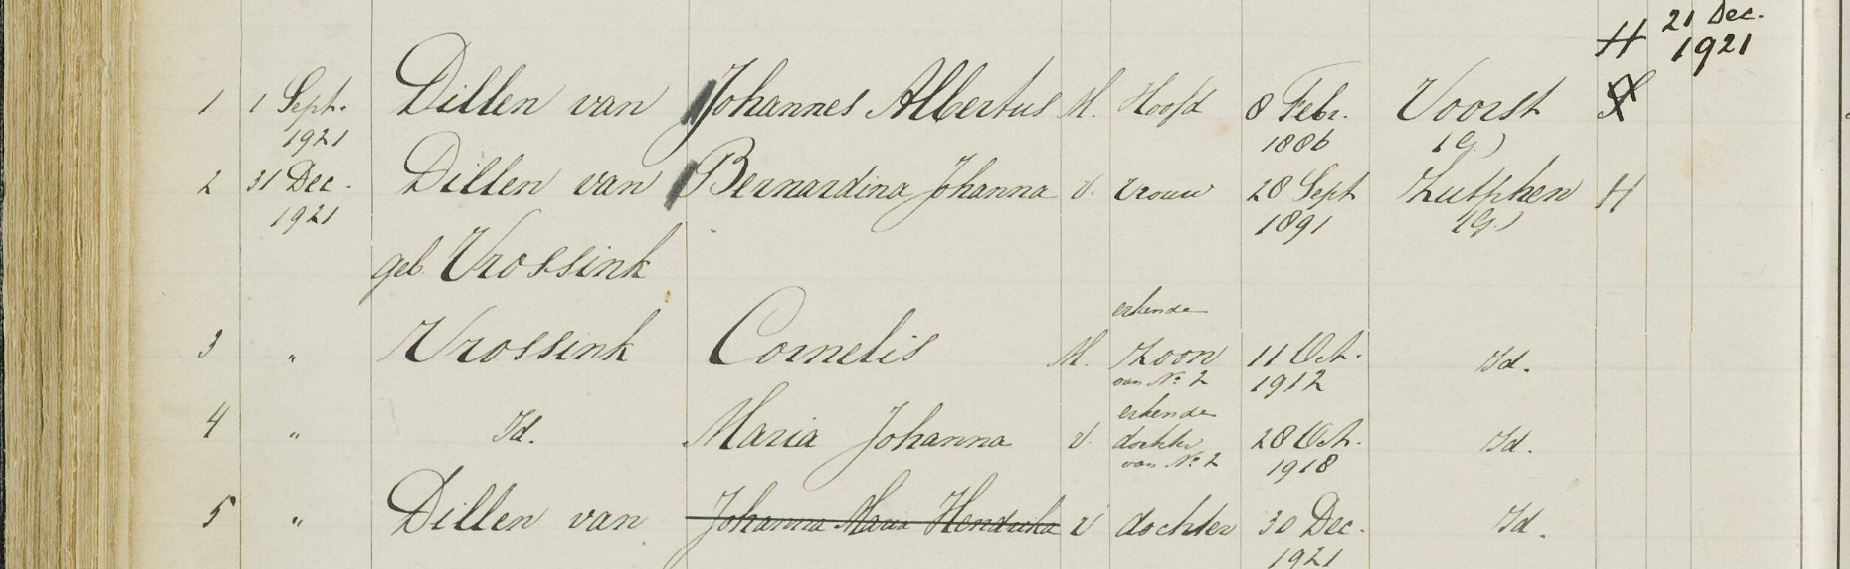 21 Dec.
H 1921
1 1 Sept. Dillen van Johannes Albertus M. Hoofd 8 Febr. Voorst
1921 1886 (G.)
2 31 Dec. Dillen van Bernardina Johanna V. vrouw 28 Sept Zutphen H
1921 1891 (G.)
geb. Vrossink
erkende
3 " Vrossink Cornelis M. Zoon 11 Oct. Id.
van No 2 1912
erkende
4 " Id. Maria Johanna V. dochter 28 Oct. Id.
van No 2 1918
5 " Dillen van Johanna Maria Hendrika V dochter 30 Dec. Id.
1921